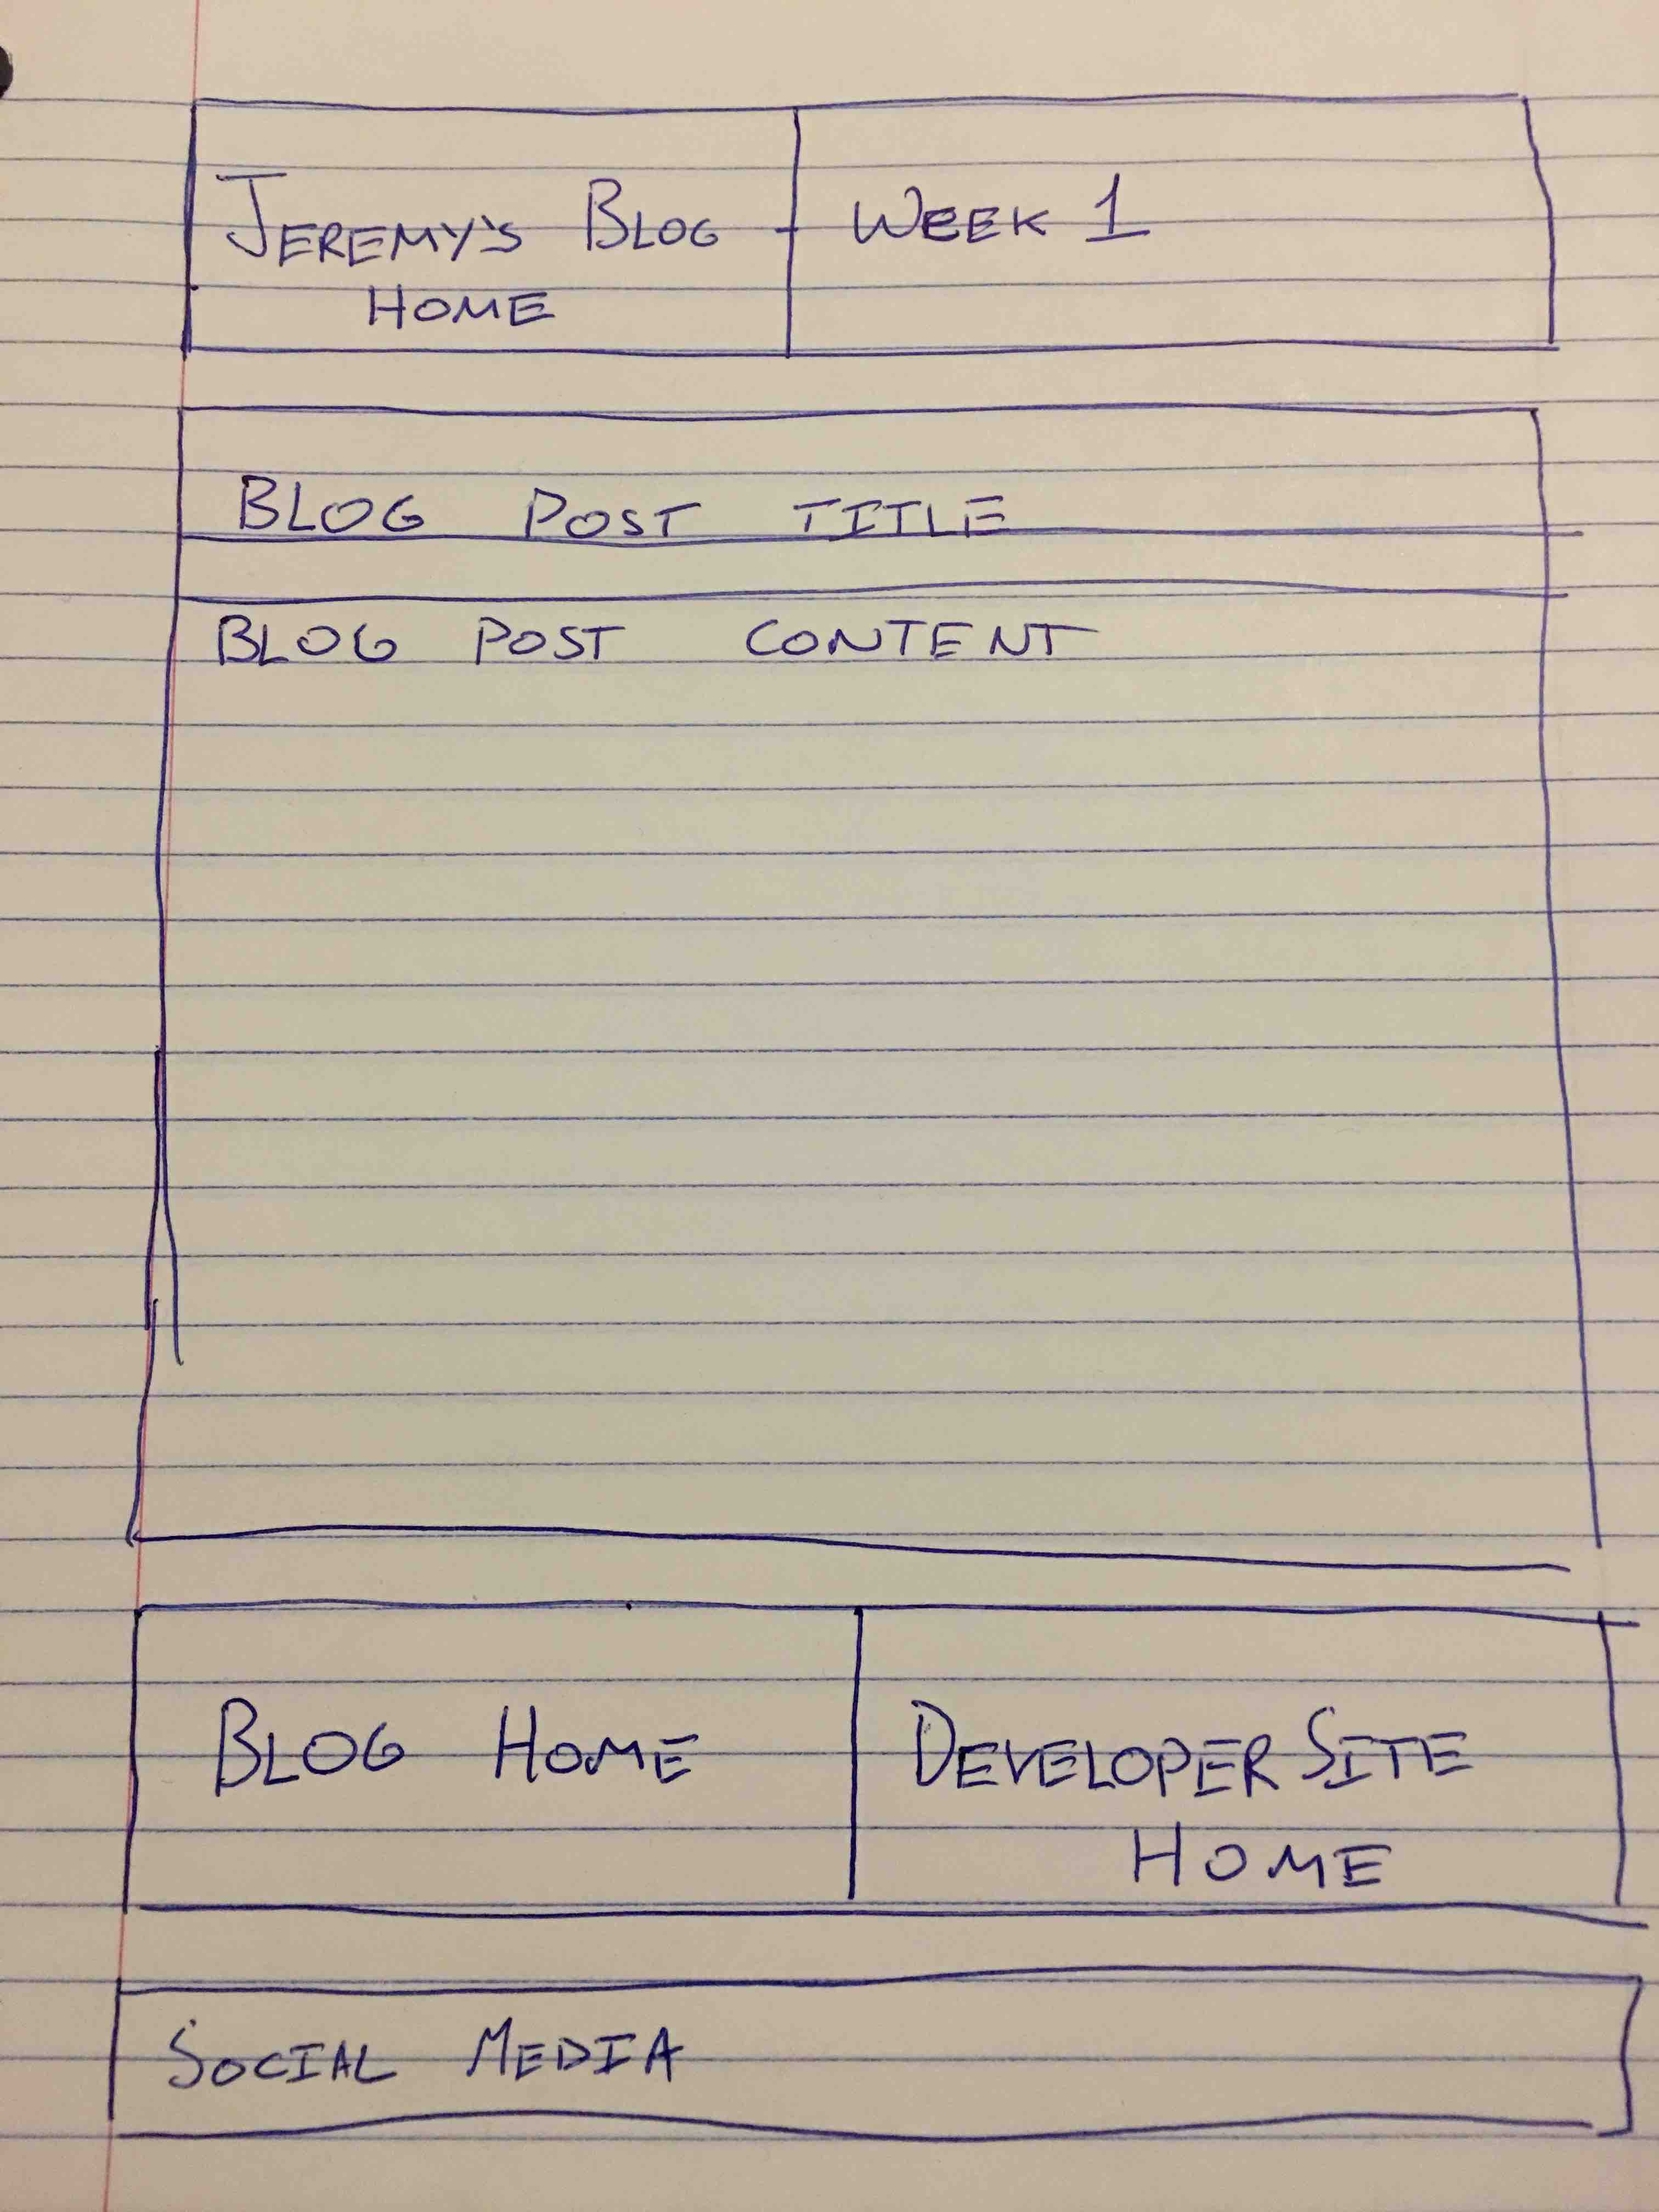 JEREMY'S BLOG - WEEK 1
HOME
BLOG POST TITLE
BLOG POST CONTENT
BLOG HOME
DEVELOPER SITE
HOME
SOCIAL MEDIA